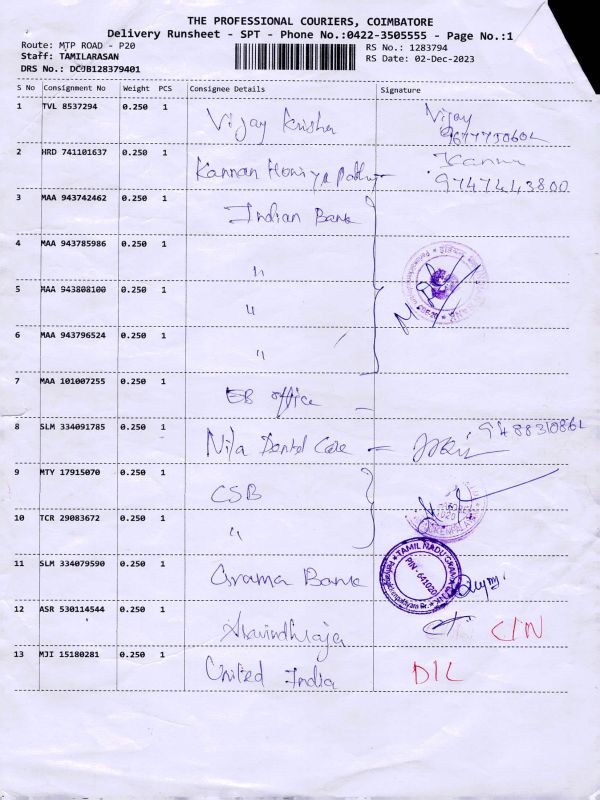 THE PROFESSIONAL COURIERS, COIMBATORE
Delivery Runsheet - SPT - Phone No.:0422-3505555 - Page No.:1
Route: MTP ROAD - P20
RS No.: 1283794
Staff: TAMILARASAN
RS Date: 02-Dec-2023
DRS No.: DCJB128379401
S No Consignment No Weight PCS Consignee Details Signature
1 TVL 8537294 0.250 1 Vijay Krishna Vijay
2 HRD 741101637 0.250 1 Kannan
9747443800
3 MAA 943742462 0.250 1 Indian Bank
4 MAA 943785986 0.250 1 "
5 MAA 943808100 0.250 1 "
6 MAA 943796524 0.250 1 "
7 MAA 101007255 0.250 1 EB office —
8 SLM 334091785 0.250 1 Nila Dental Care
9 MTY 17915070 0.250 1 CSB
10 TCR 29083672 0.250 1 "
11 SLM 334079590 0.250 1 Grama Bank
TAMIL NADU GRAMA BANK
PIN - 641020
12 ASR 530114544 0.250 1 Aravindhraja C/N
13 MJI 15180281 0.250 1 United India D/L